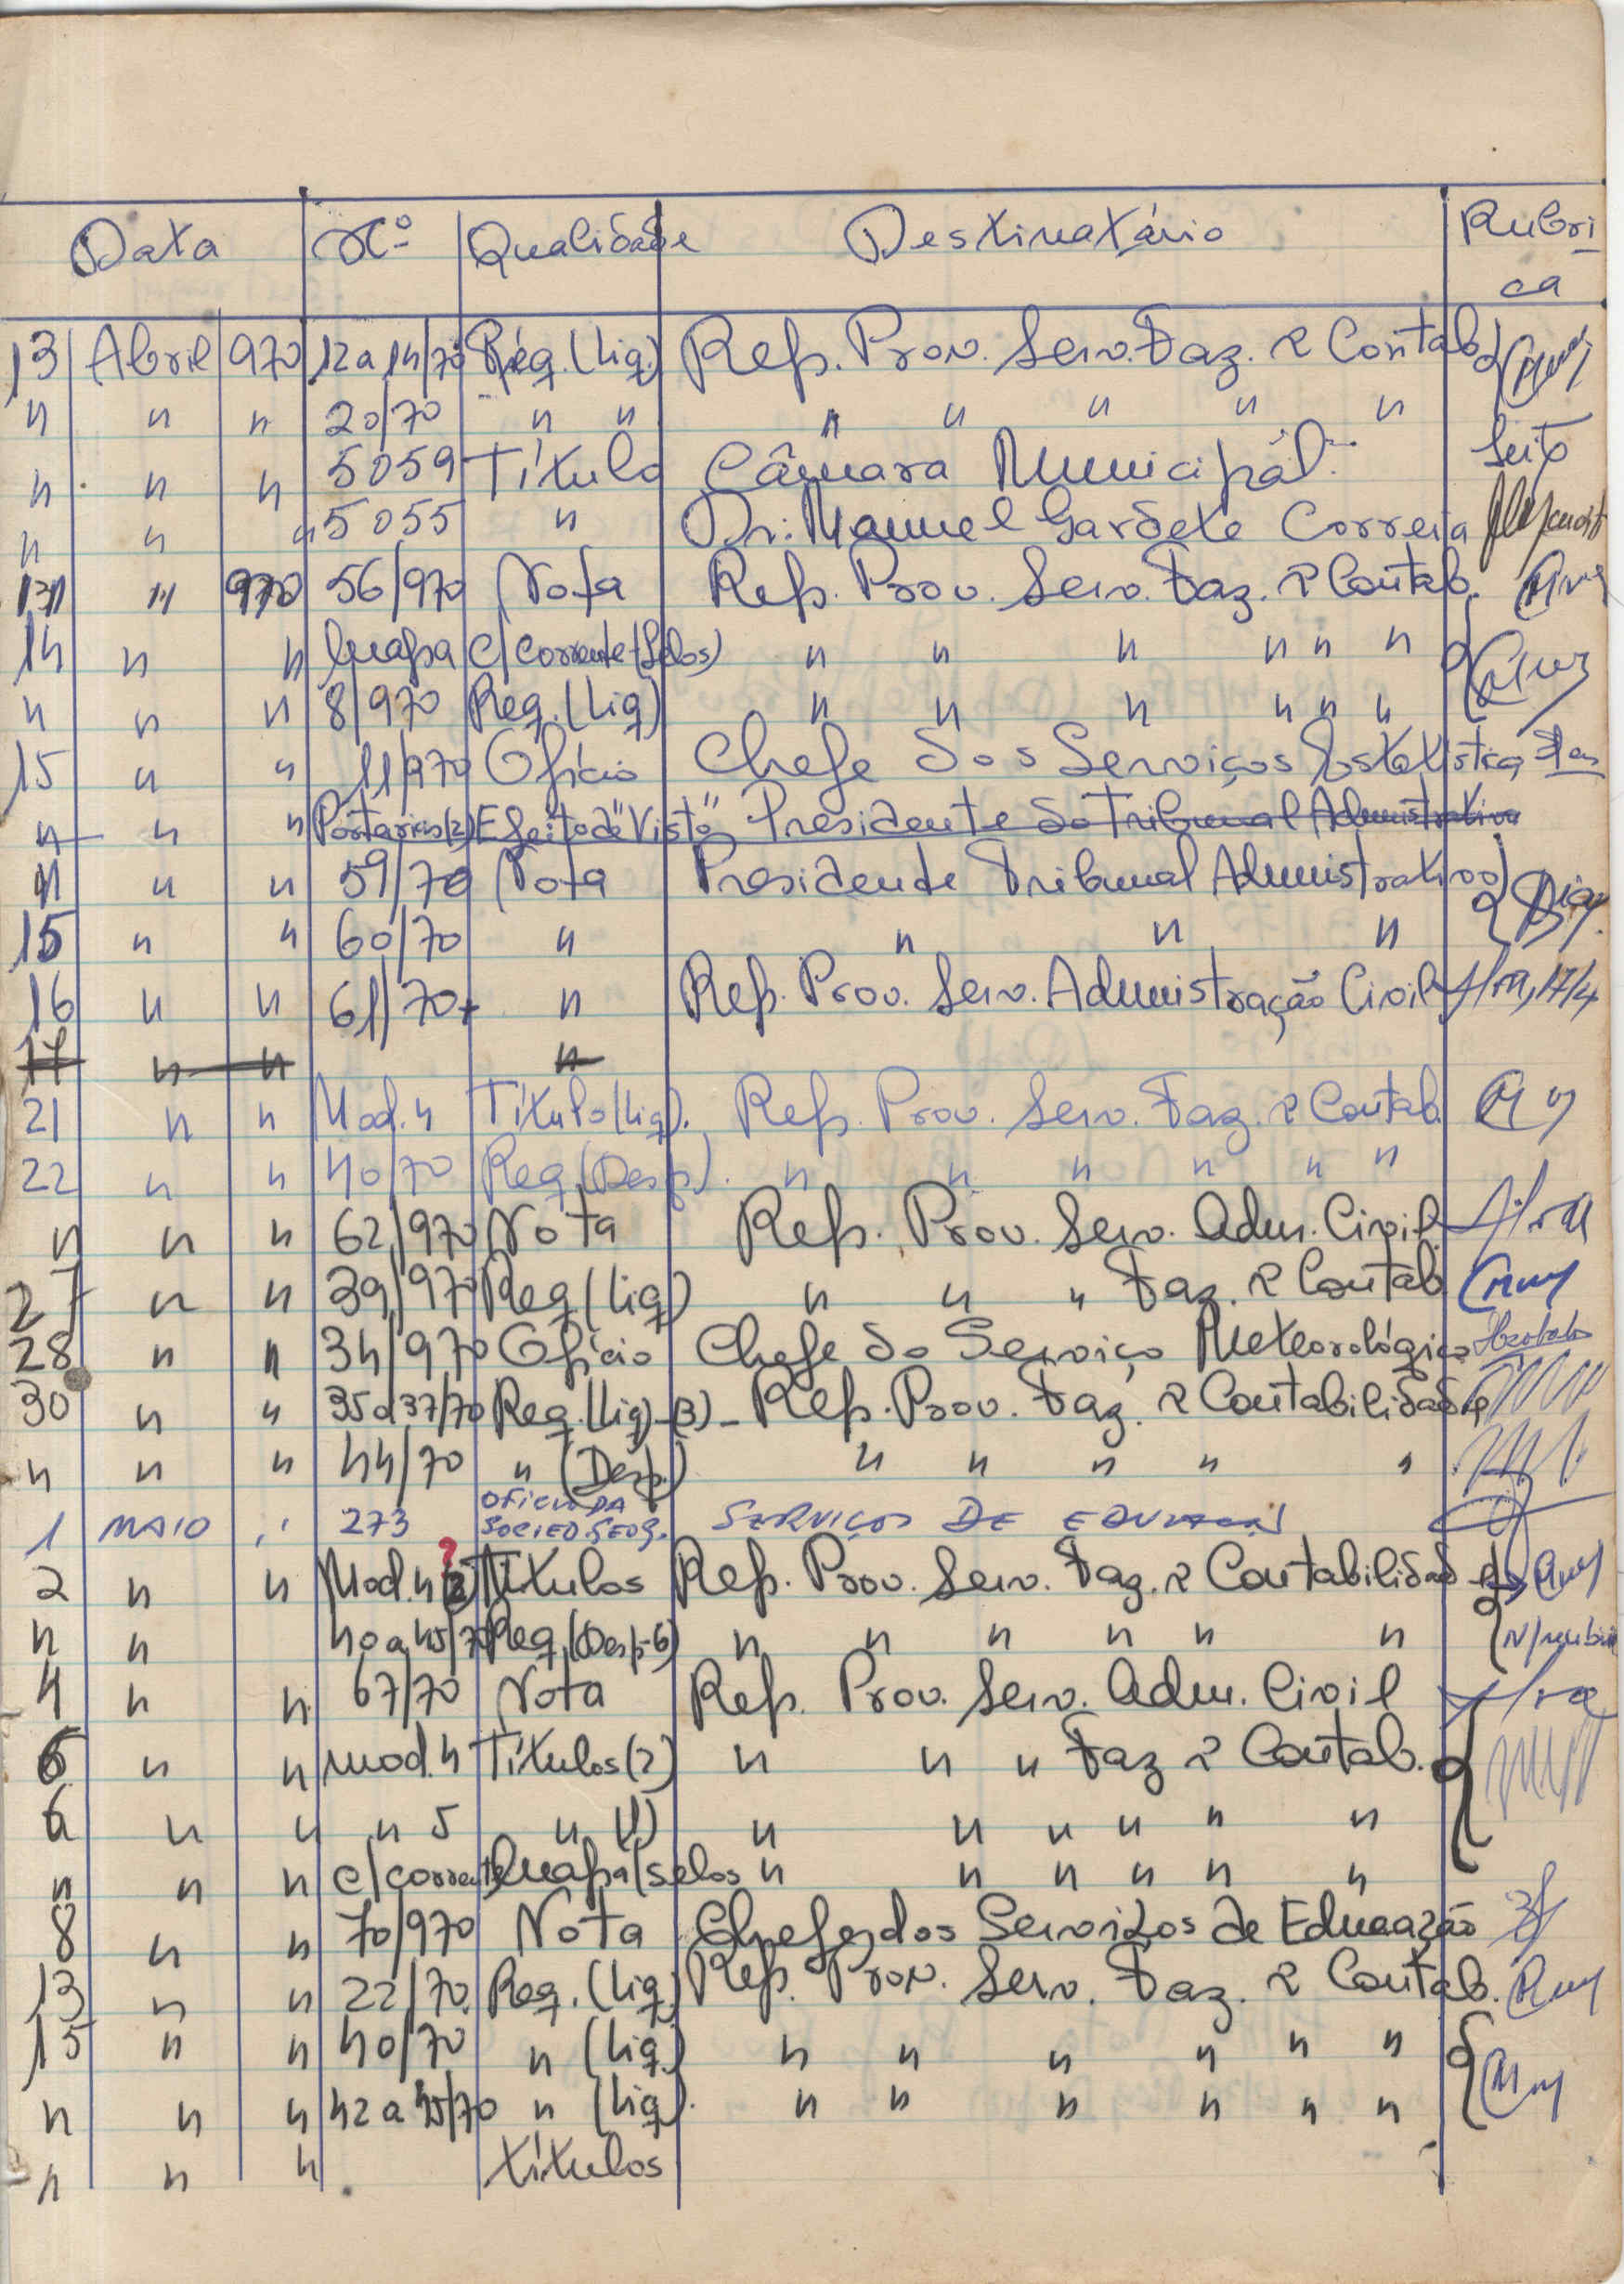 Data Nº Qualidade Destinatário Rubri-
ca
13 Abril 970 12 a 14/70 Req. (Liq.) Rep. Prov. Serv. Faz. e Contab.
" " " 20/70 " " " " " " "
" " " 5059 Título Câmara Municipal
" " " 5055 " Dr. Manuel Gardete Correia
" " 970 56/970 Nota Rep. Prov. Serv. Faz. e Contab.
14 " " Mapa c/corrente (Selos) " " " " " "
" " " 8/970 Req. (Liq) " " " " " "
15 " " 11/970 Ofício Chefe dos Serviços Estatística
" " " Portarias (2) Efeito de "Visto" Presidente do Tribunal Administrativo
" " " 59/70 Nota Presidente Tribunal Administrativo
15 " " 60/70 " " " "
16 " " 61/70 " Rep. Prov. Serv. Administração Civil 17/4
17 " " "
21 " " Mod. 4 Título (Liq). Rep. Prov. Serv. Faz. e Contab.
22 " " 40/70 Req (Desp). " " " " " "
" " " 62/970 Nota Rep. Prov. Serv. Adm. Civil
27 " " 39/970 Req (Liq) " " " Faz. e Contab
28 " " 34/970 Ofício Chefe do Serviço Meteorológico
30 " " 35 a 37/70 Req. (Liq) - (3) - Rep. Prov. Faz. e Contabilidade
" " " 44/70 " (Desp.) " " " " "
1 MAIO " 273 OFICIO DA SOCIED. GEOG. SERVIÇOS DE EDUCAÇÃO
?
2 " " Mod. 4 (2) Títulos Rep. Prov. Serv. Faz. e Contabilidade
" " 40 a 45/70 Req. (Desp-6) " " " " " "
4 " " 67/70 Nota Rep. Prov. Serv. Adm. Civil
6 " " Mod. 4 Títulos (2) " " " Faz e Contab.
6 " " " 5 " (1) " " " " " "
" " " c/corrente Mapa (selos " " " " " "
8 " " 70/970 Nota Chefe dos Serviços de Educação
13 " " 22/70 Req. (Liq.) Rep. Prov. Serv. Faz. e Contab.
15 " " 40/70 " (Liq.) " " " " " "
" " " 42 a 45/70 " (Liq). " " " " " "
" " " títulos